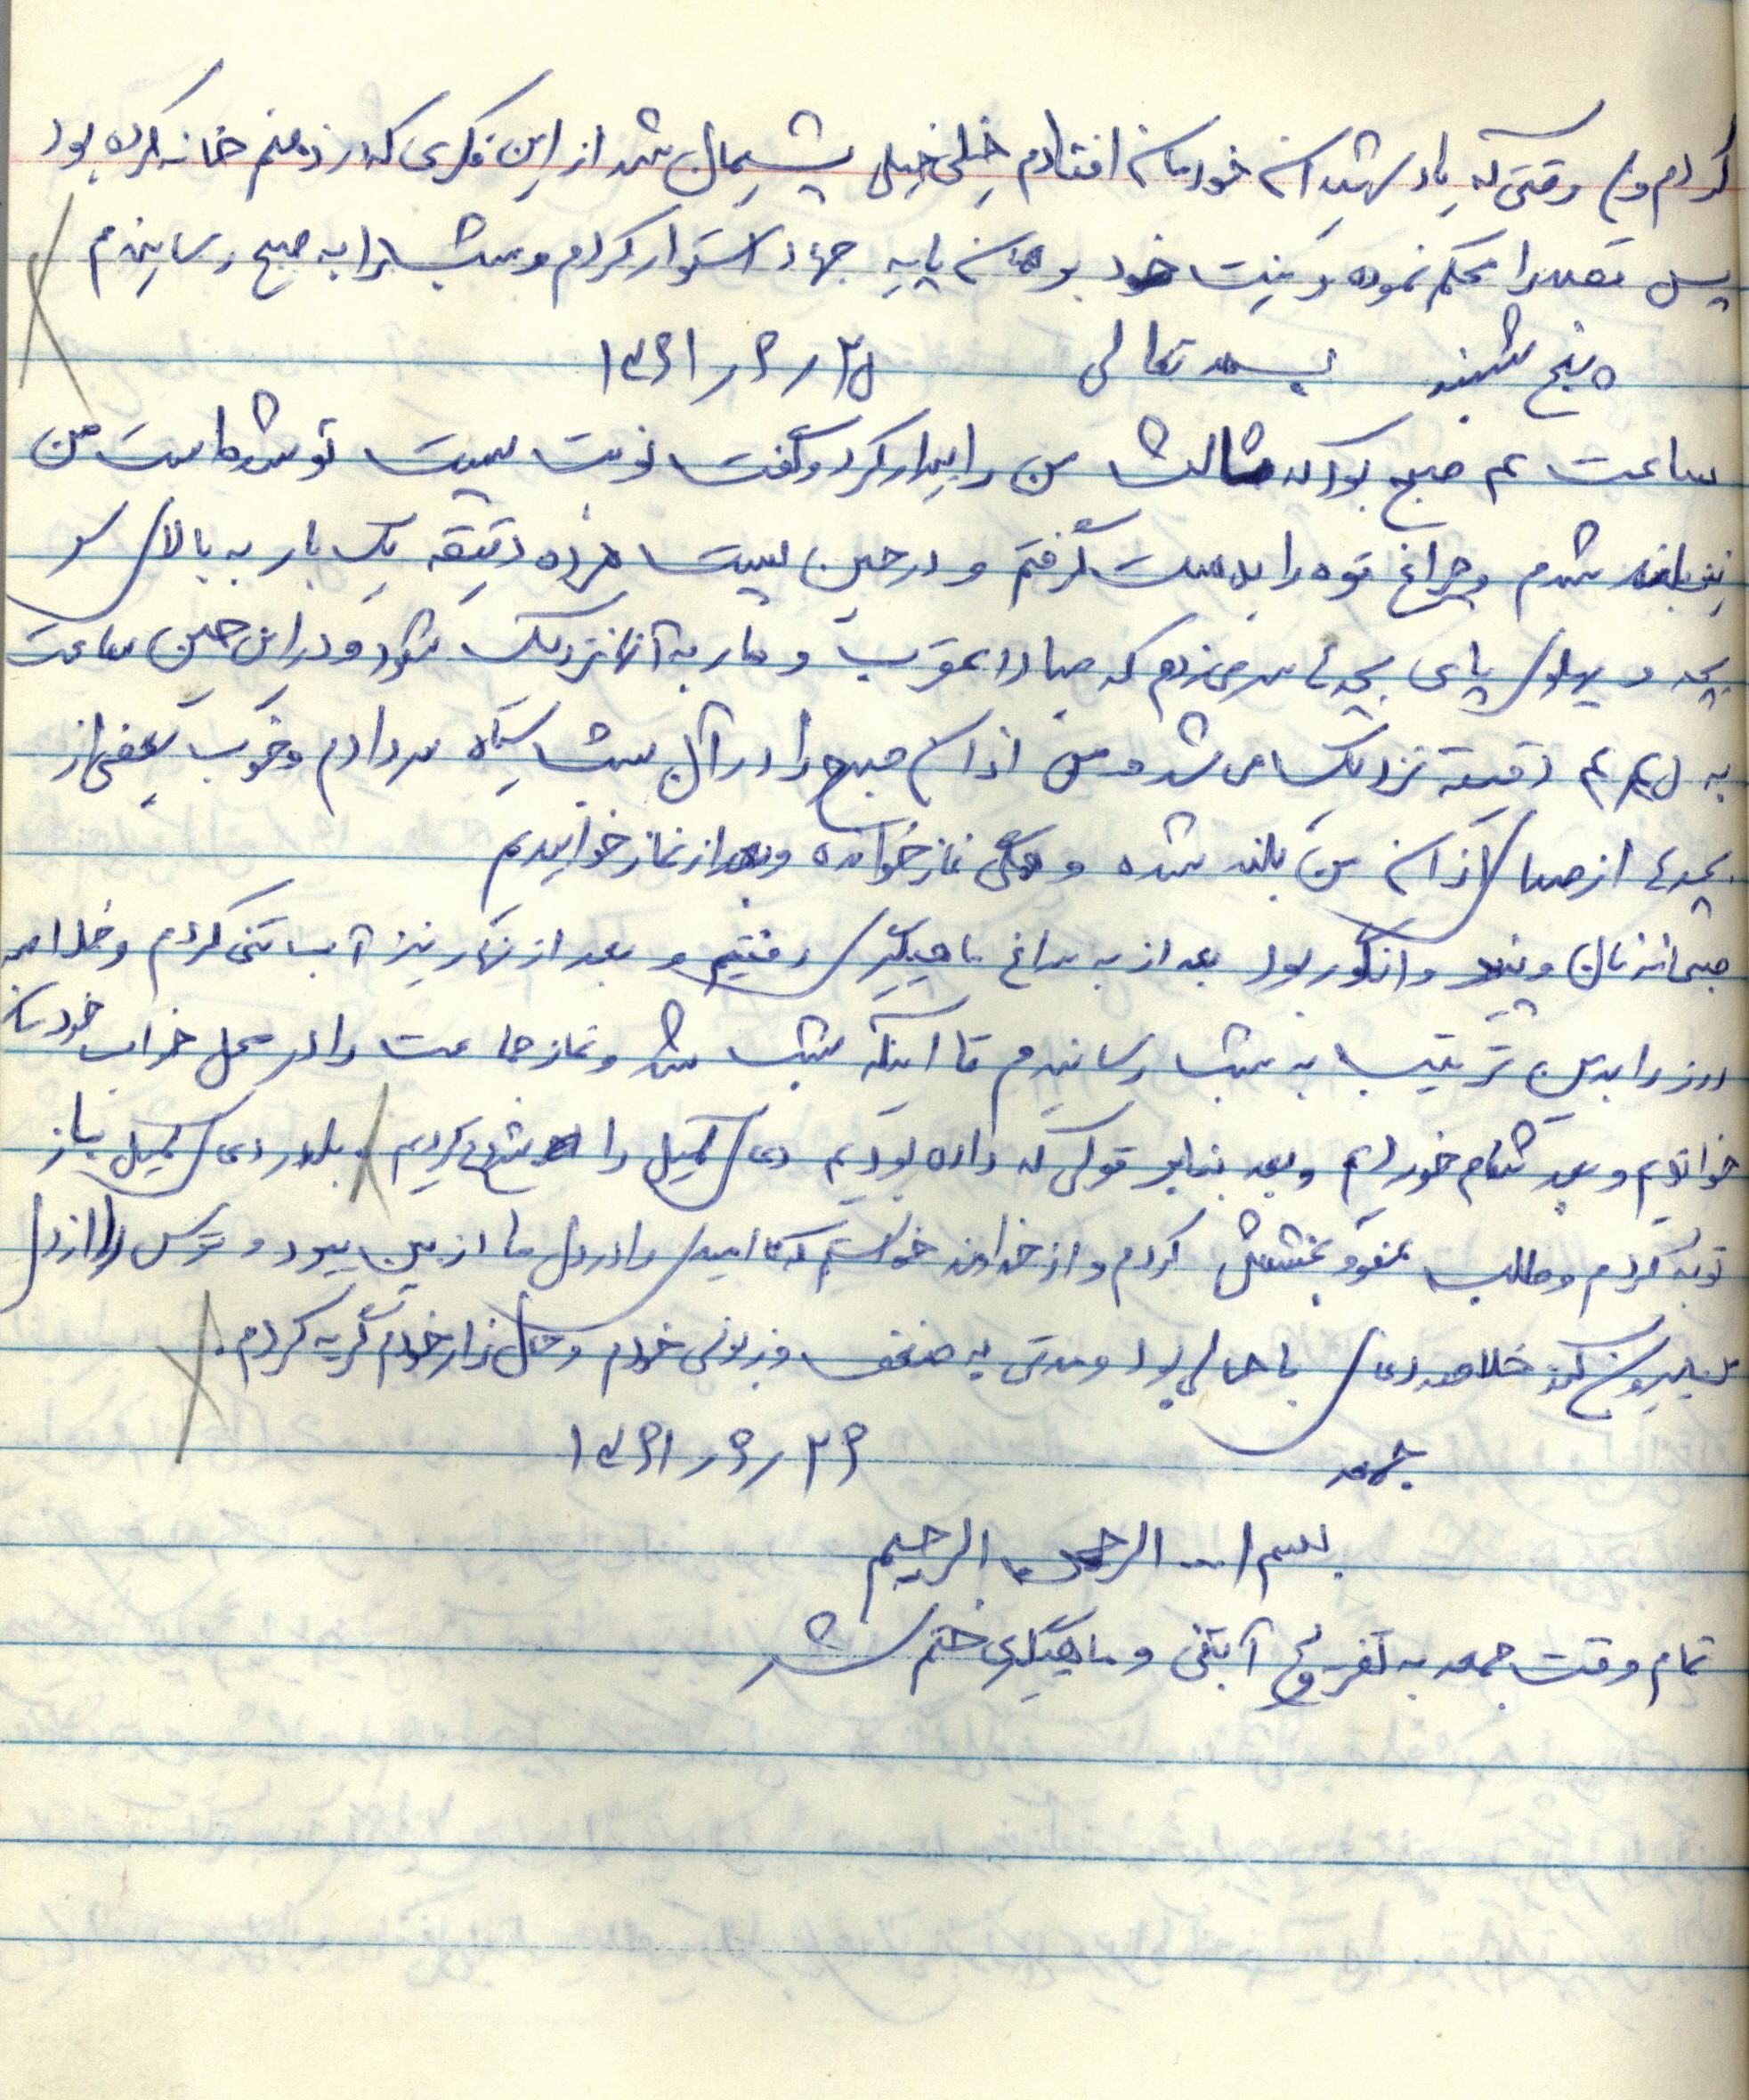 کردم ولی وقتی که یاد شهیدان خودمان افتادم خیلی خیلی پشیمان شد از این فکری که در ذهنم خانه کرده بود
پس قصد را محکم نموده و نیت خود بر همان پایه جهاد استوار کردم و شب را به صبح رساندم
پنج شنبه بسمه تعالی ۲۵ ر ۶ ر ۱۳۶۱
ساعت ۴ صبح بود که مثالث من را بیدار کرد و گفت نوبت پست تو شده است من
نیز بلند شدم و چراغ قوه را بدست گرفتم و در حین پست هر ده دقیقه یک بار به بالای سر
بچه و پهلوی پای بچه ها سر می زدم که مبادا عقرب و مار به آنها نزدیک شود و در این حین ساعت
به ۴٫۴۵ دقیقه نزدیک می شد و من اذان صبح را در آن شب سیاه سر دادم و خوب بعضی از
بچه ها از صدای اذان من بلند شده و همگی نماز خوانده و بعد از نماز خوابیدیم
صبحانه نان و پنیر و انگور بود بعد از به سراغ ماهیگیری رفتیم و بعد از نهار نیز آب تنی کردم و خلاصه
روز را بدین ترتیب به شب رساندیم تا اینکه شب شد و نماز جماعت را در محل خواب خودمان
خواندیم و بعد شام خوردیم و بعد بنابر قولی که داده بودیم دعای کمیل را شروع کردیم در دعای کمیل باز
توبه کردم و طلب عفو و بخشش کردم و از خداوند خواستم که نا امیدی را در دل ما از بین ببرد و ترس را از دل
ما بیرون کند خلاصه دعای با حالی بود و مدتی به ضعف و زبونی خودم و حال زار خودم گریه کردم.
جمعه ۲۶ ر ۶ ر ۱۳۶۱
بسم ا... الرحمن الرحیم
تمام وقت جمعه به تفریح آبتنی و ماهیگیری ختم شد